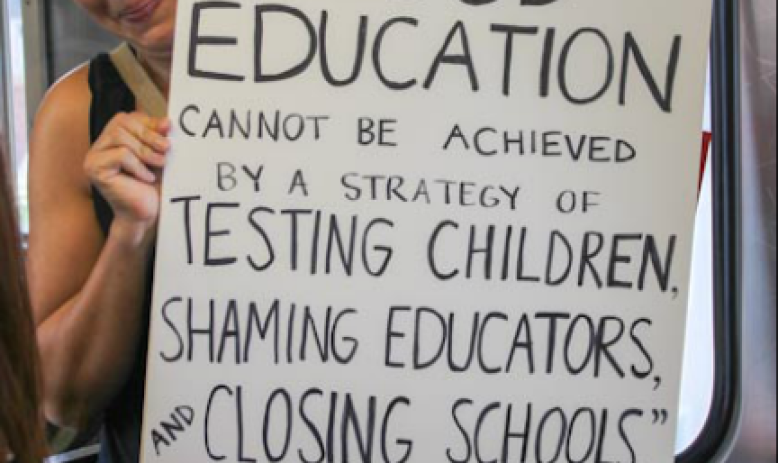 EDUCATION
CANNOT BE ACHIEVED
BY A STRATEGY OF
TESTING CHILDREN,
SHAMING EDUCATORS,
AND CLOSING SCHOOLS”